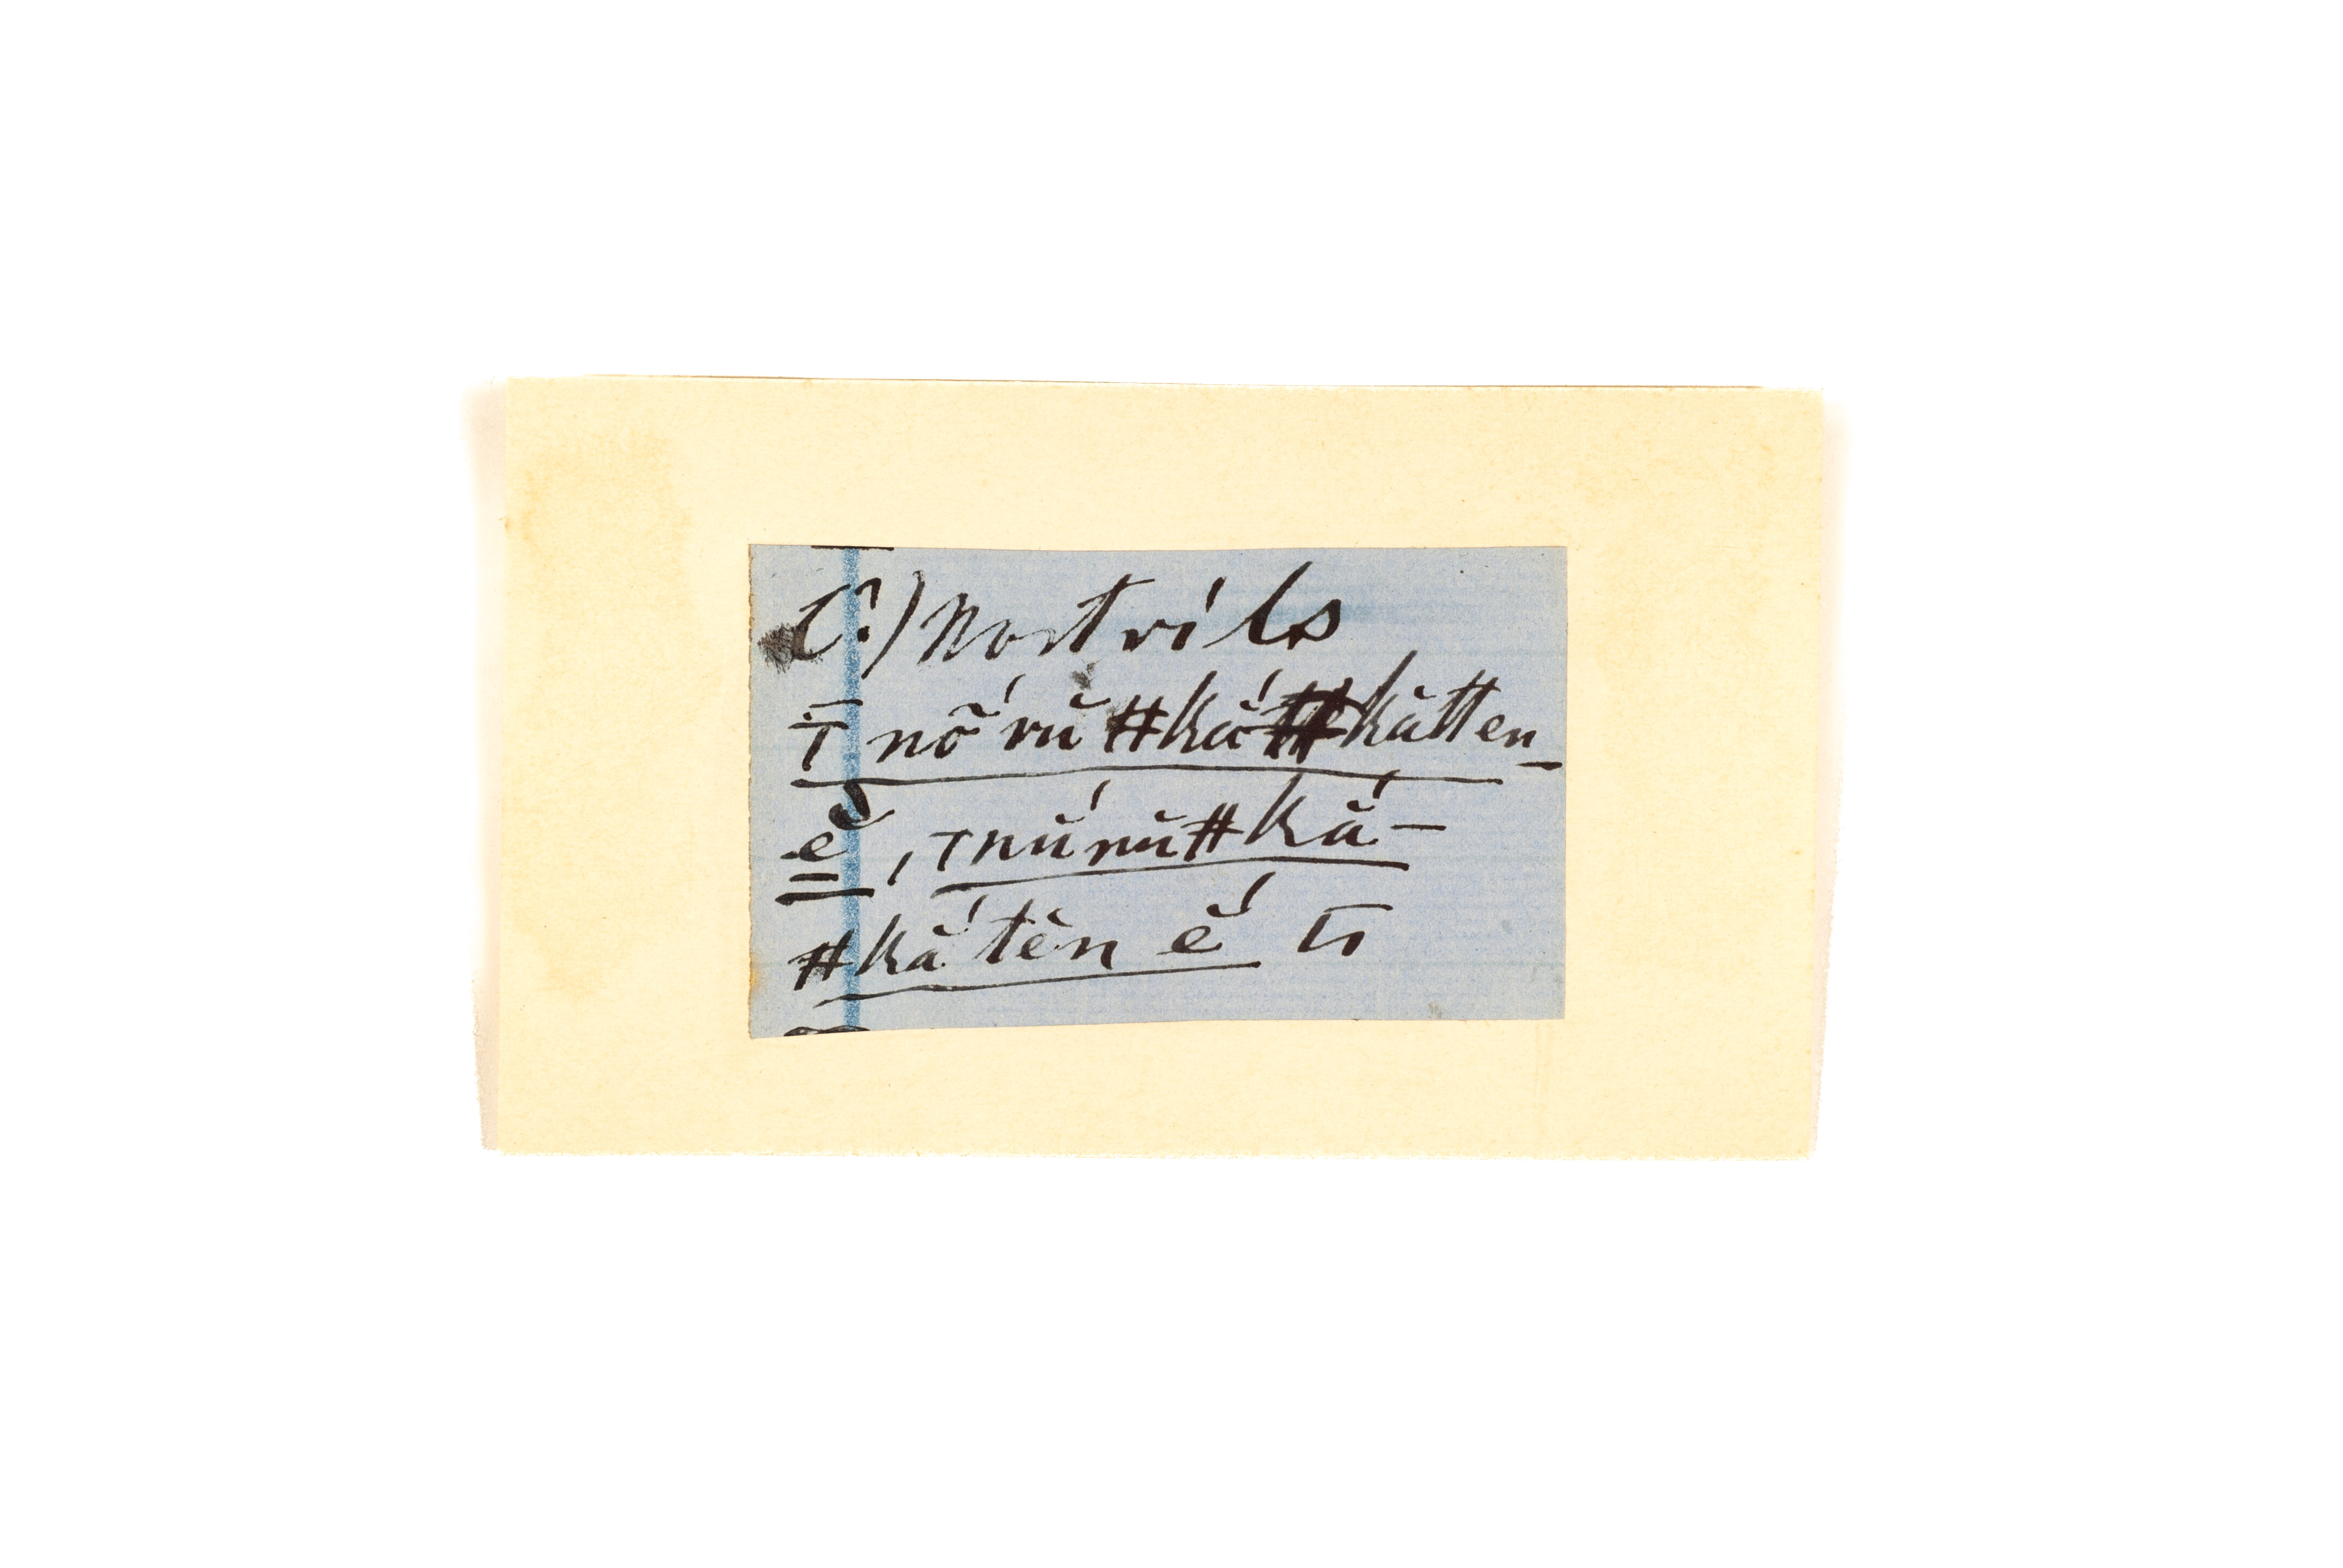 C?) Nostrils
T̄ nṍ rŭ ǂkắ ǂkătten-
ĕ́, Tnŭ́ rŭ ǂkắ-
ǂkắ tĕn ĕ́ ti